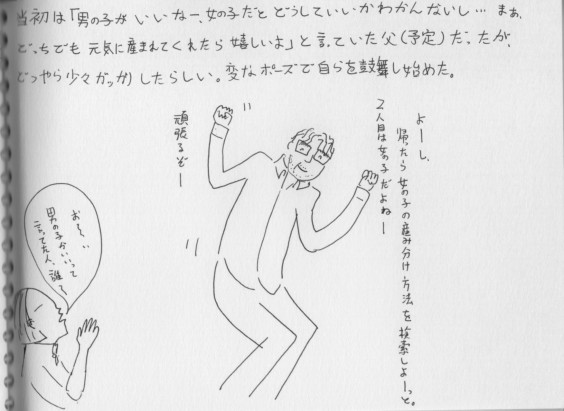 当初は「男の子がいいなー、女の子だとどうしていいかわかんないし…まぁ、
どっちでも元気に産まれてくれたら嬉しいよ」と言っていた父(予定)だったが、
どうやら少々ガッカリしたらしい。変なポーズで自らを鼓舞し始めた。
よーし、
帰ったら女の子の産み分け方法を検索しよーっと。
2人目は女の子だよねー
頑張るぞー
お〜い
男の子がいいって
言ってた人、誰〜